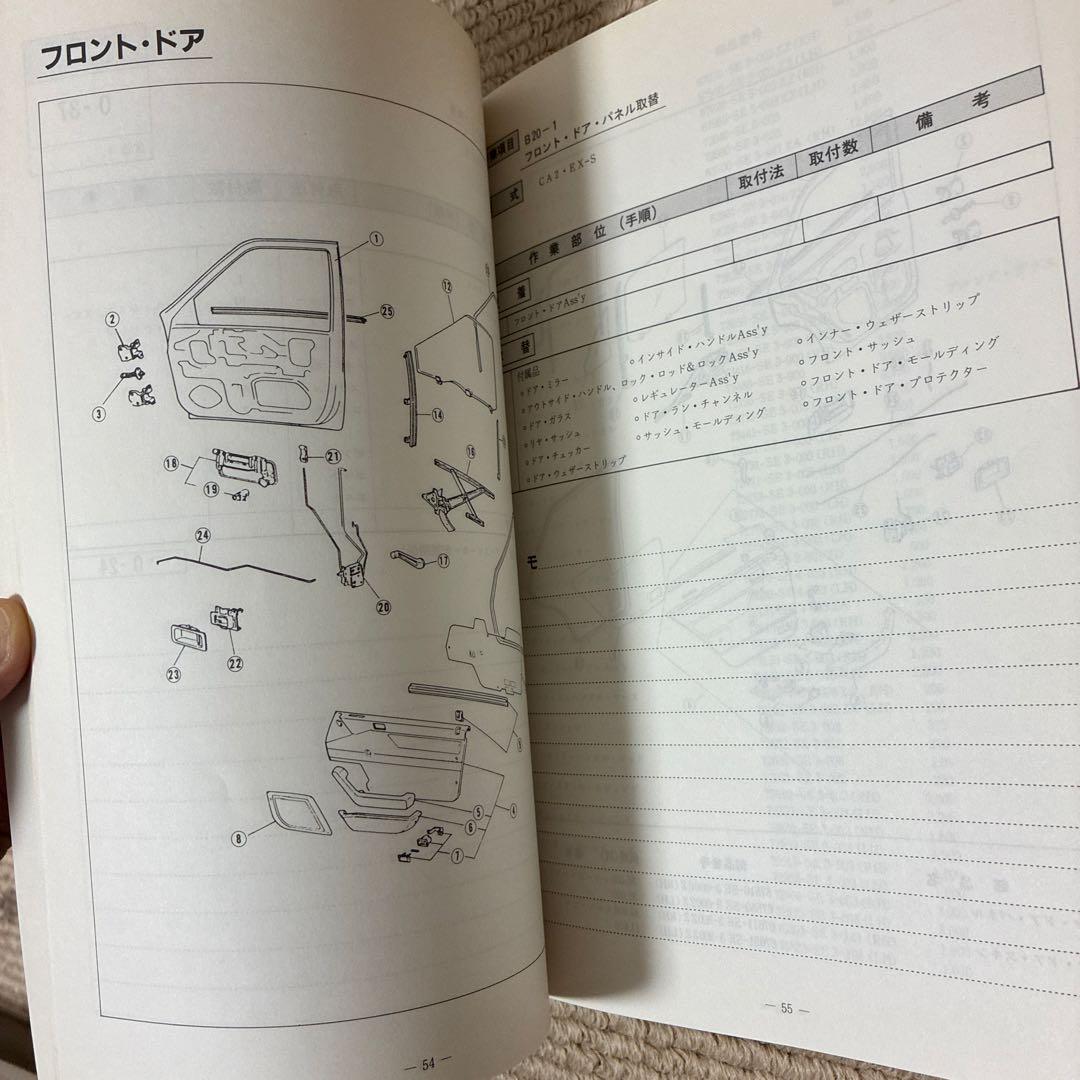 フロント・ドア
①
②
③
⑫
㉕
⑭
⑱
⑲
㉑
⑯
㉔
⑰
⑳
㉓
㉒
⑤
④
⑥
⑧
⑦
— 54 —
項目
B20−1
フロント・ドア・パネル取替
式
CA2・EX−S
作業部位（手順）
取付法
取付数
備考
着
フロント・ドアAss'y
替
付属品
○ドア・ミラー
○アウトサイド・ハンドル、ロック・ロッド&ロックAss'y
○ドア・ガラス
○リヤ・サッシュ
○ドア・チェッカー
○ドア・ウェザーストリップ
○インサイド・ハンドルAss'y
○レギュレーターAss'y
○ドア・ラン・チャンネル
○サッシュ・モールディング
○インナー・ウェザーストリップ
○フロント・サッシュ
○フロント・ドア・モールディング
○フロント・ドア・プロテクター
モ
— 55 —